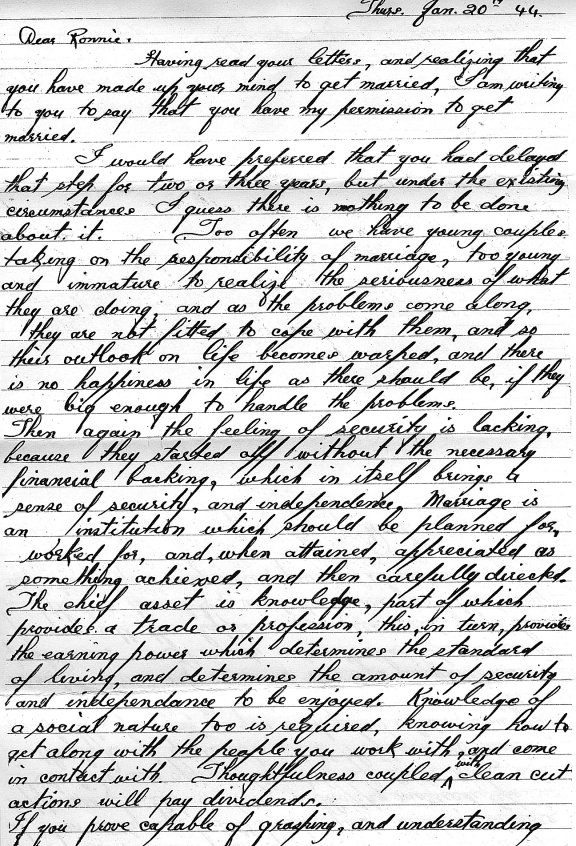 Thurs. Jan. 20th 44.
Dear Ronnie.
Having read your letters, and realizing that
you have made up your mind to get married, I am writing
to you to say that you have my permission to get
married.
I would have preferred that you had delayed
that step for two or three years, but under the existing
circumstances I guess there is nothing to be done
about it. Too often we have young couples
taking on the responsibility of marriage, too young
and immature to realize the seriousness of what
they are doing, and as the problems come along,
they are not fitted to cope with them, and so
their outlook on life becomes warped, and there
is no happiness in life as there should be, if they
were big enough to handle the problems.
Then again the feeling of security is lacking,
because they started off without the necessary
financial backing, which in itself brings a
sense of security, and independence. Marriage is
an institution which should be planned for,
worked for, and, when attained, appreciated as
something achieved, and then carefully directed.
The chief asset is knowledge, part of which
provides a trade or profession, this, in turn, provides
the earning power which determines the standard
of living, and determines the amount of security
and independance to be enjoyed. Knowledge of
a social nature too is required, knowing how to
get along with the people you work with, and come
in contact with. Thoughtfulness coupled with clean cut
actions will pay dividends.
If you prove capable of grasping, and understanding